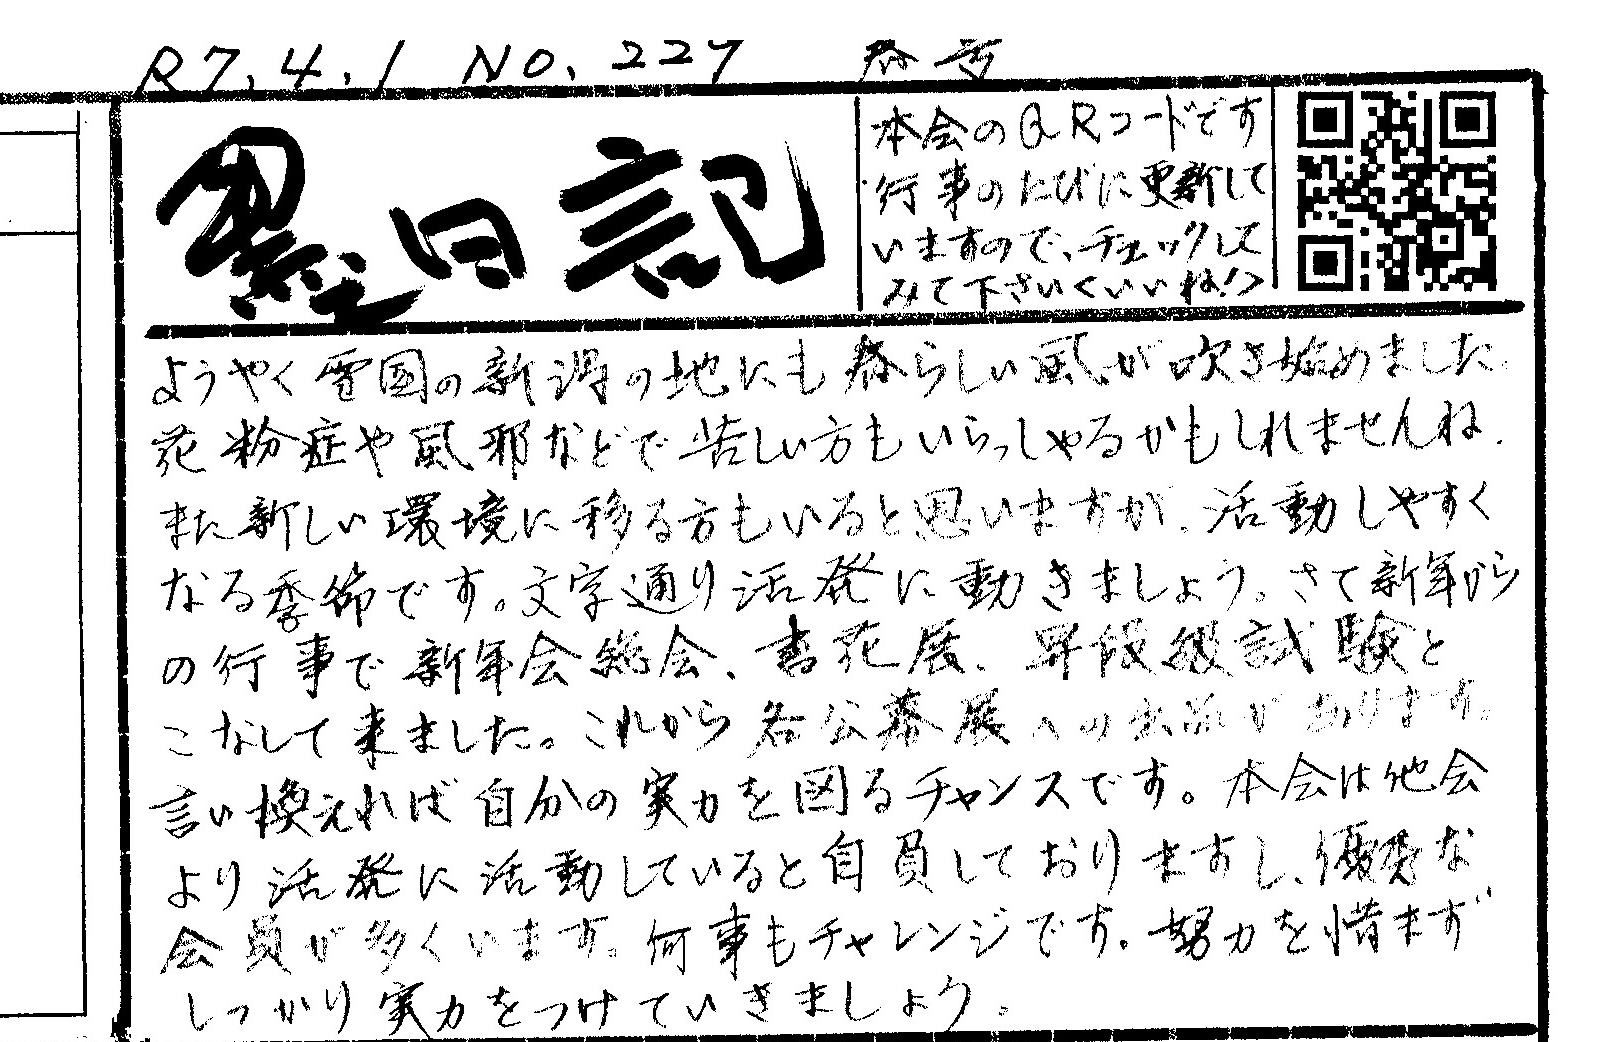 R7.4.1 NO.227 春号
墨日記
本会のQRコードです
行事のたびに更新して
いますので、チェックして
みて下さい<いいね!>
ようやく雪国の新潟の地にも春らしい風が吹き始めました。
花粉症や風邪などで苦しい方もいらっしゃるかもしれませんね。
また新しい環境に移る方もいると思いますが、活動しやすく
なる季節です。文字通り活発に動きましょう。さて新年から
の行事で新年会総会、書苑展、昇段級試験と
こなして来ました。これから各公募展への出品があります。
言い換えれば自分の実力を図るチャンスです。本会は他会
より活発に活動していると自負しておりますし、優秀な
会員が多くいます。何事もチャレンジです。努力を惜まず
しっかり実力をつけていきましょう。